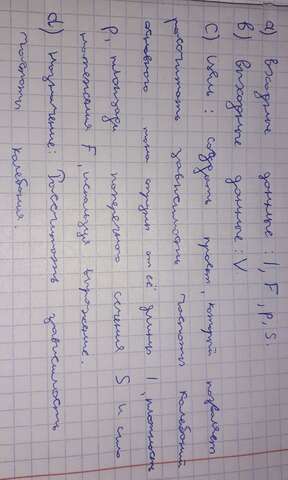 a) входные данные: l, F, p, S.
b) выходные данные: V
c) цель: создать проект, который позволяет
рассчитать зависимость частоты колебаний
основного тона струны от её длины l, плотности
p, площади поперечного сечения S и силы
натяжения F, используя выражение.
d) назначение: Рассчитать зависимость
частоты колебания.